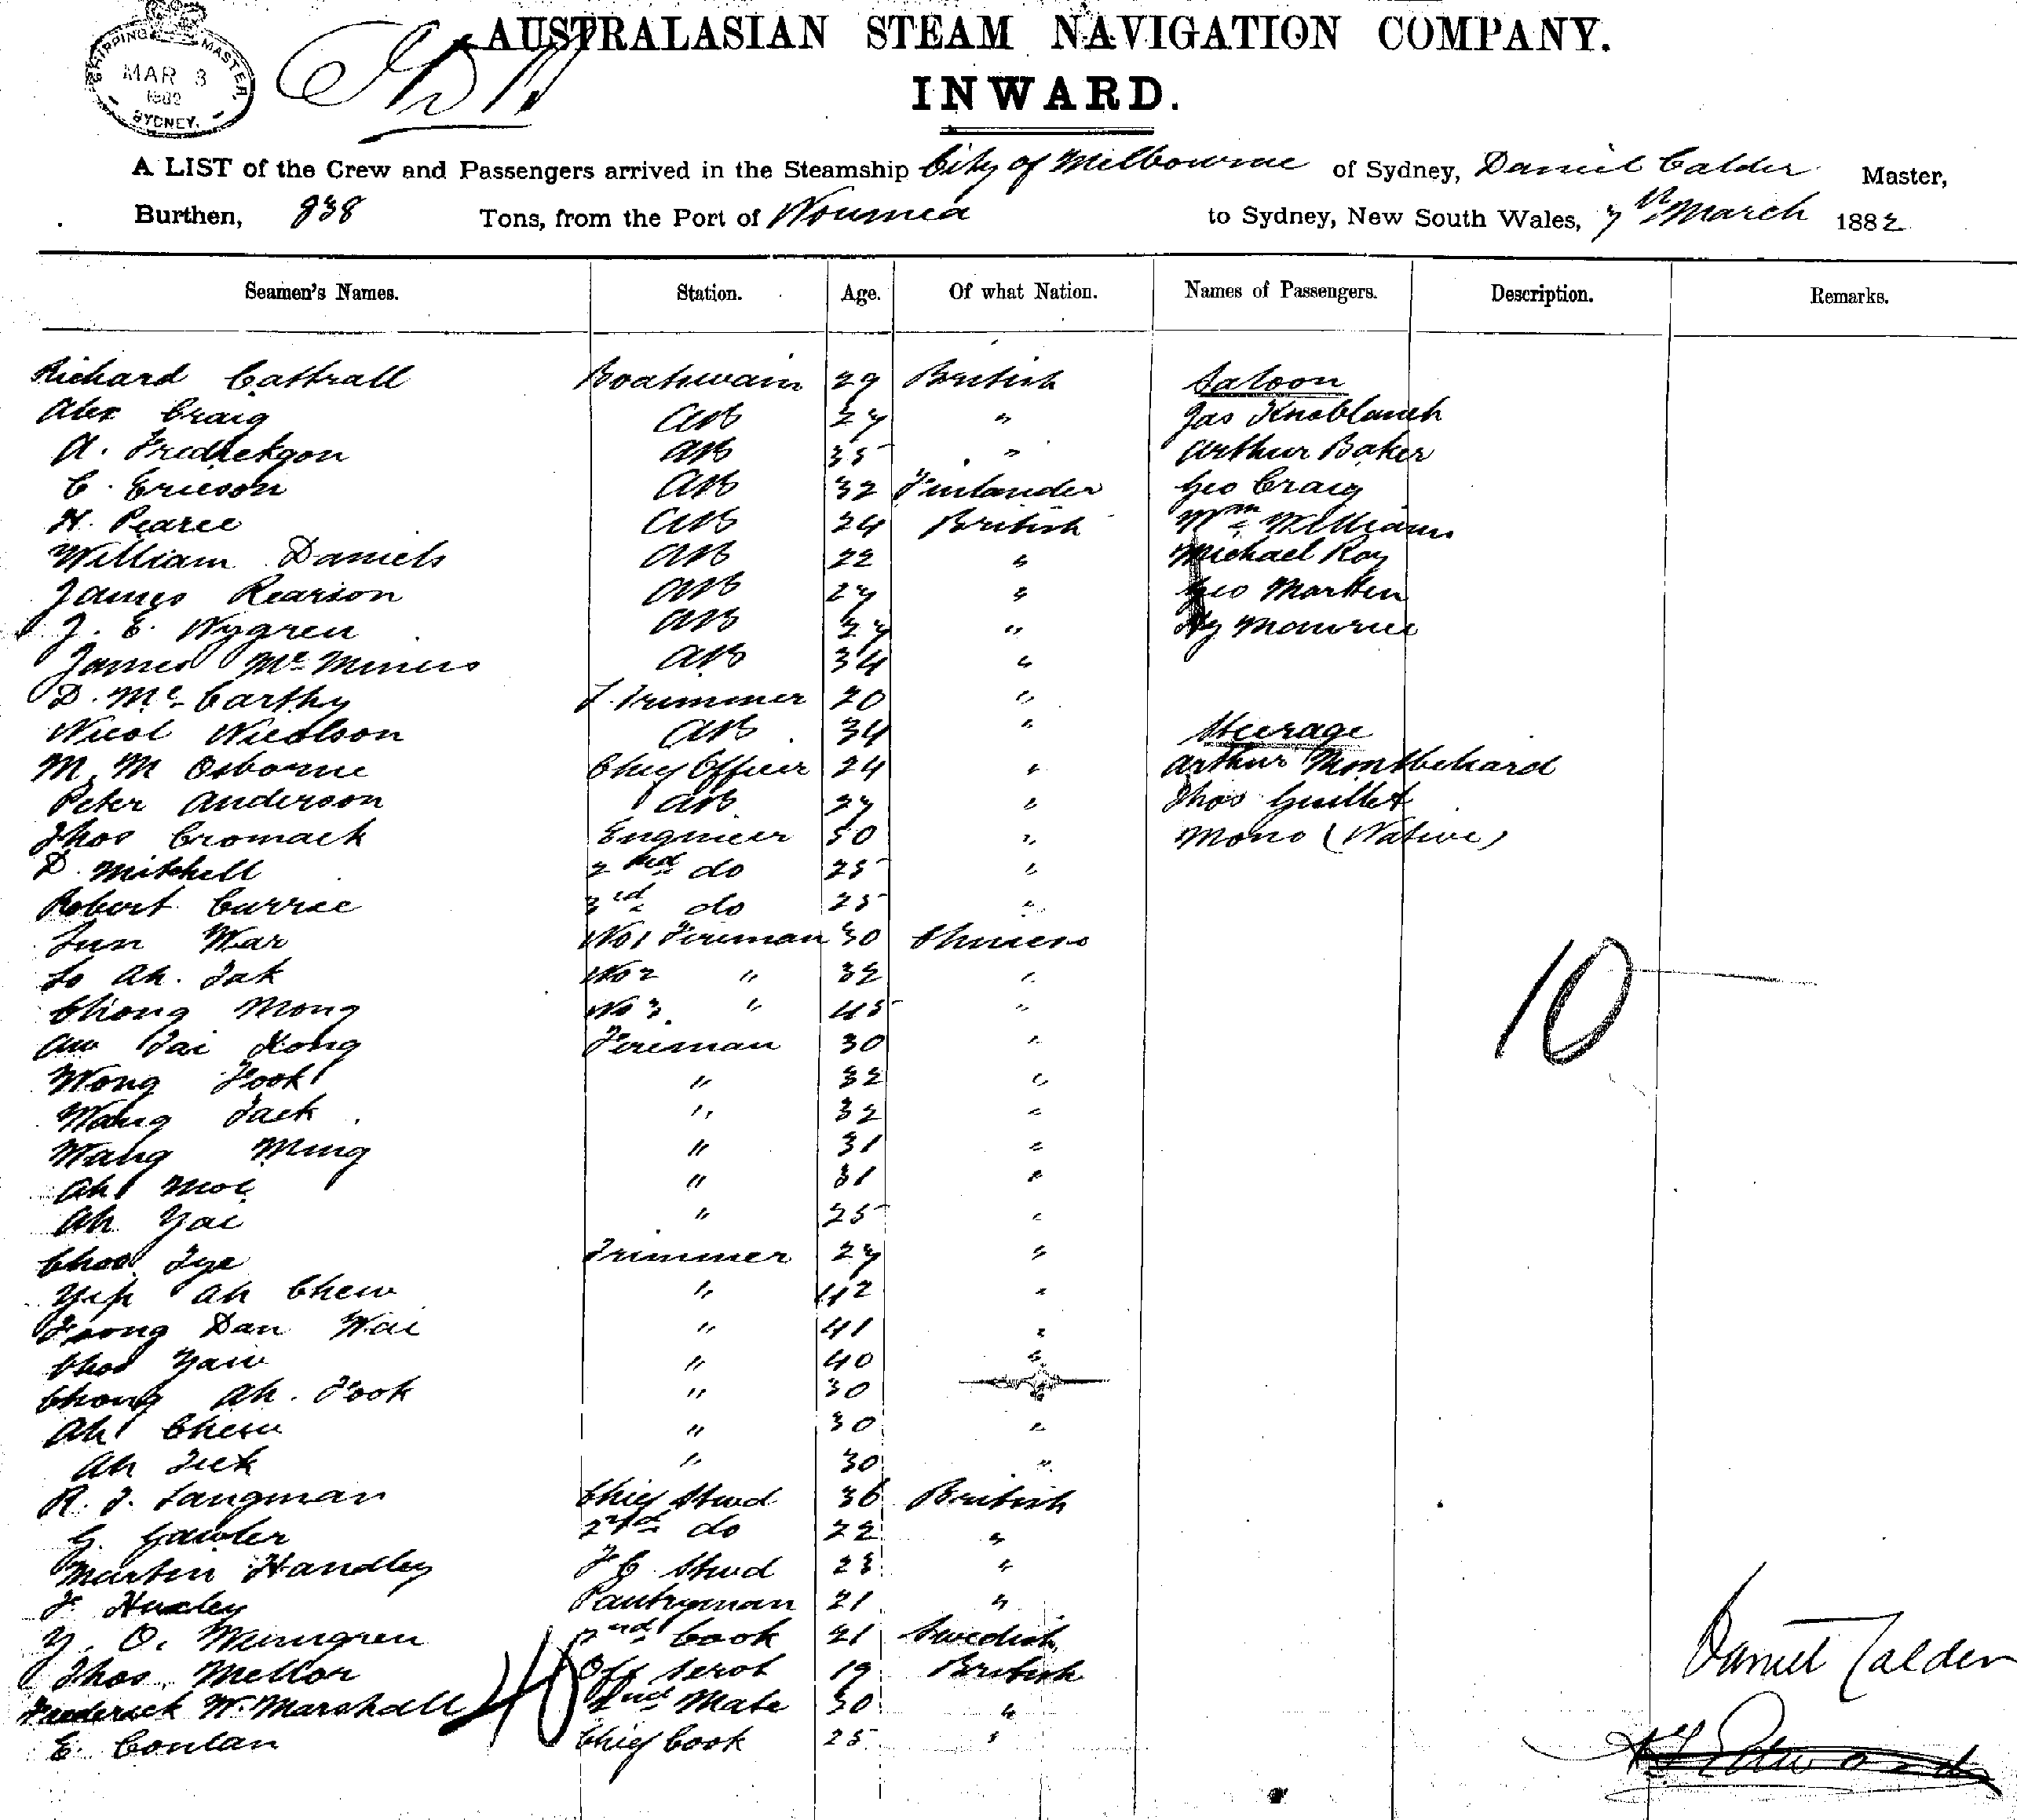 AUSTRALASIAN STEAM NAVIGATION COMPANY.
SHIPPING MASTER, MAR 3 1882 SYDNEY.
INWARD.
A LIST of the Crew and Passengers arrived in the Steamship City of Melbourne of Sydney, Daniel Calder Master,
Burthen, 838 Tons, from the Port of Noumea to Sydney, New South Wales, 7th March 1882
Seamen's Names. Station. Age. Of what Nation. Names of Passengers. Description. Remarks.
Richard Cattrall Boatswain 29 British Saloon
Alex Craig AB 27 " Jas Knoblauch
A. Fredrickson AB 35 " Arthur Baker
C. Ericson AB 32 Finlander Geo Craig
H. Pearce AB 24 British Wm Williams
William Daniels AB 22 " Michael Roy
James Rearson AB 27 " Geo Martten
J. E. Nygren AB 27 " Hy Maurice
James Mc Minns AB 34 "
D. Mc Carthy F. Trimmer 20 "
Nicol Nicolson AB 34 " Steerage
M. M Osborne Chief Officer 24 " Arthur Montbehard
Peter Anderson AB 27 " Thos Guillet
Thos Cromack Engineer 50 " Mono (Native)
D. Mitchell 2nd do 25 "
Robert Currie 3rd do 25 "
Sun War No 1 Fireman 30 Chinese
Lo Ah. Tak No 2 " 32 "
Chong Mong No 3 " 45 "
Aw Tai Kong Fireman 30 "
Wong Fook " 32 "
Wang Jack " 32 "
Wang Ming " 31 "
Ah Moi " 31 "
Ah Yai " 25 "
Choo Tye Trimmer 27 "
Yip Ah Chew " 42 "
Dan Wai " 41 "
Choo Yaw " 40 "
Chong Ah. Fook " 30 "
Ah Chew " 30 "
Ah Tick " 30 "
R. J. Langman Chief Stwd 36 British
G. Gawler 2nd do 22 "
Martin Handley F C Stwd 23 "
F. Huxley Pantryman 21 "
Y. O. Wenngren 2nd Cook 21 Swedish
Thos. Mellor Off Servt 19 British
Frederick W. Marshall 2nd Mate 30 "
E. Conlan Chief Cook 25 "
10
40
Daniel Calder